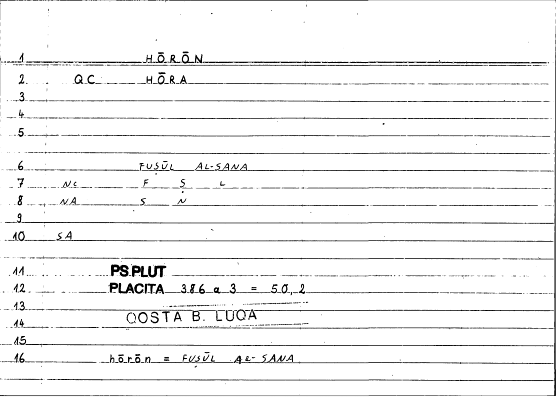 1 HŌRŌN
2 QC HŌRA
3
4
5
6 FUṢŪL AL-SANA
7 NC F Ṣ L
8 NA S N
9
10 SA
11 PS.PLUT
12 PLACITA 386 a 3 = 50, 2
13
14 QOSTA B. LUQA
15
16 hōrōn = FUṢŪL AL-SANA